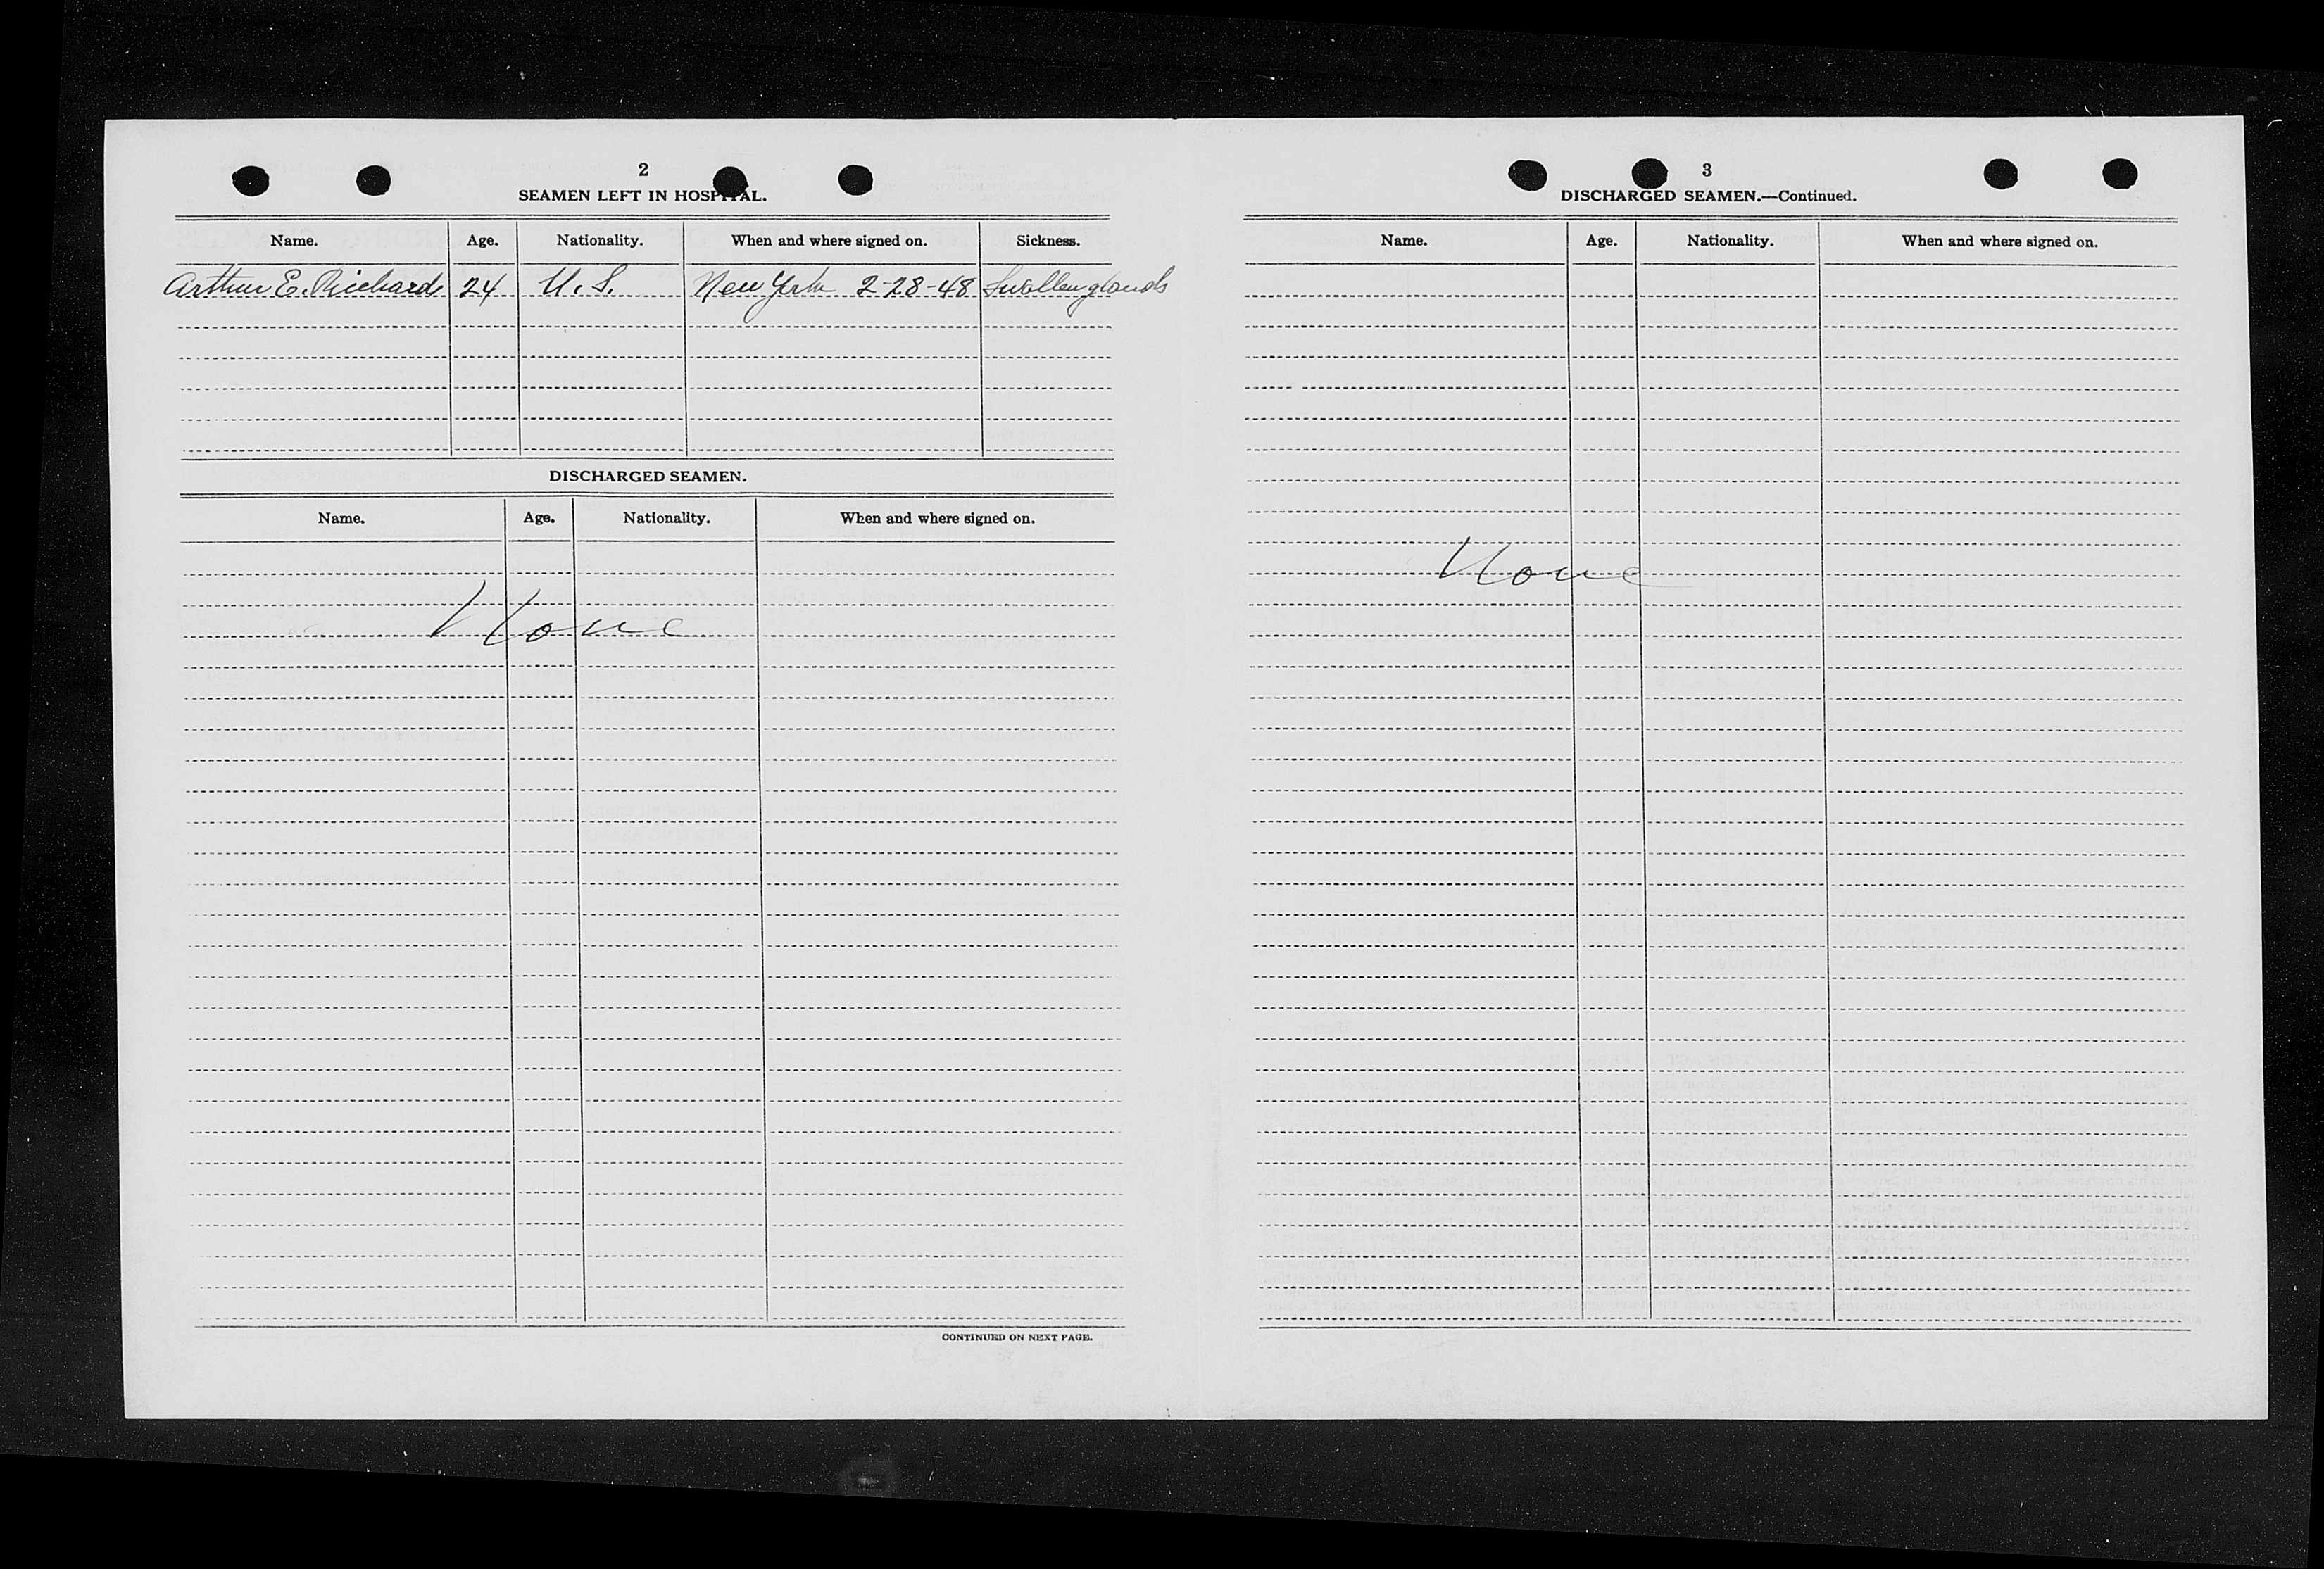 2
SEAMEN LEFT IN HOSPITAL.
Name. Age. Nationality. When and where signed on. Sickness.
Arthur E. Richards 24 U.S. New York 2-28-48 Swollen glands
DISCHARGED SEAMEN.
Name. Age. Nationality. When and where signed on.
None
CONTINUED ON NEXT PAGE.
3
DISCHARGED SEAMEN.—Continued.
Name. Age. Nationality. When and where signed on.
None